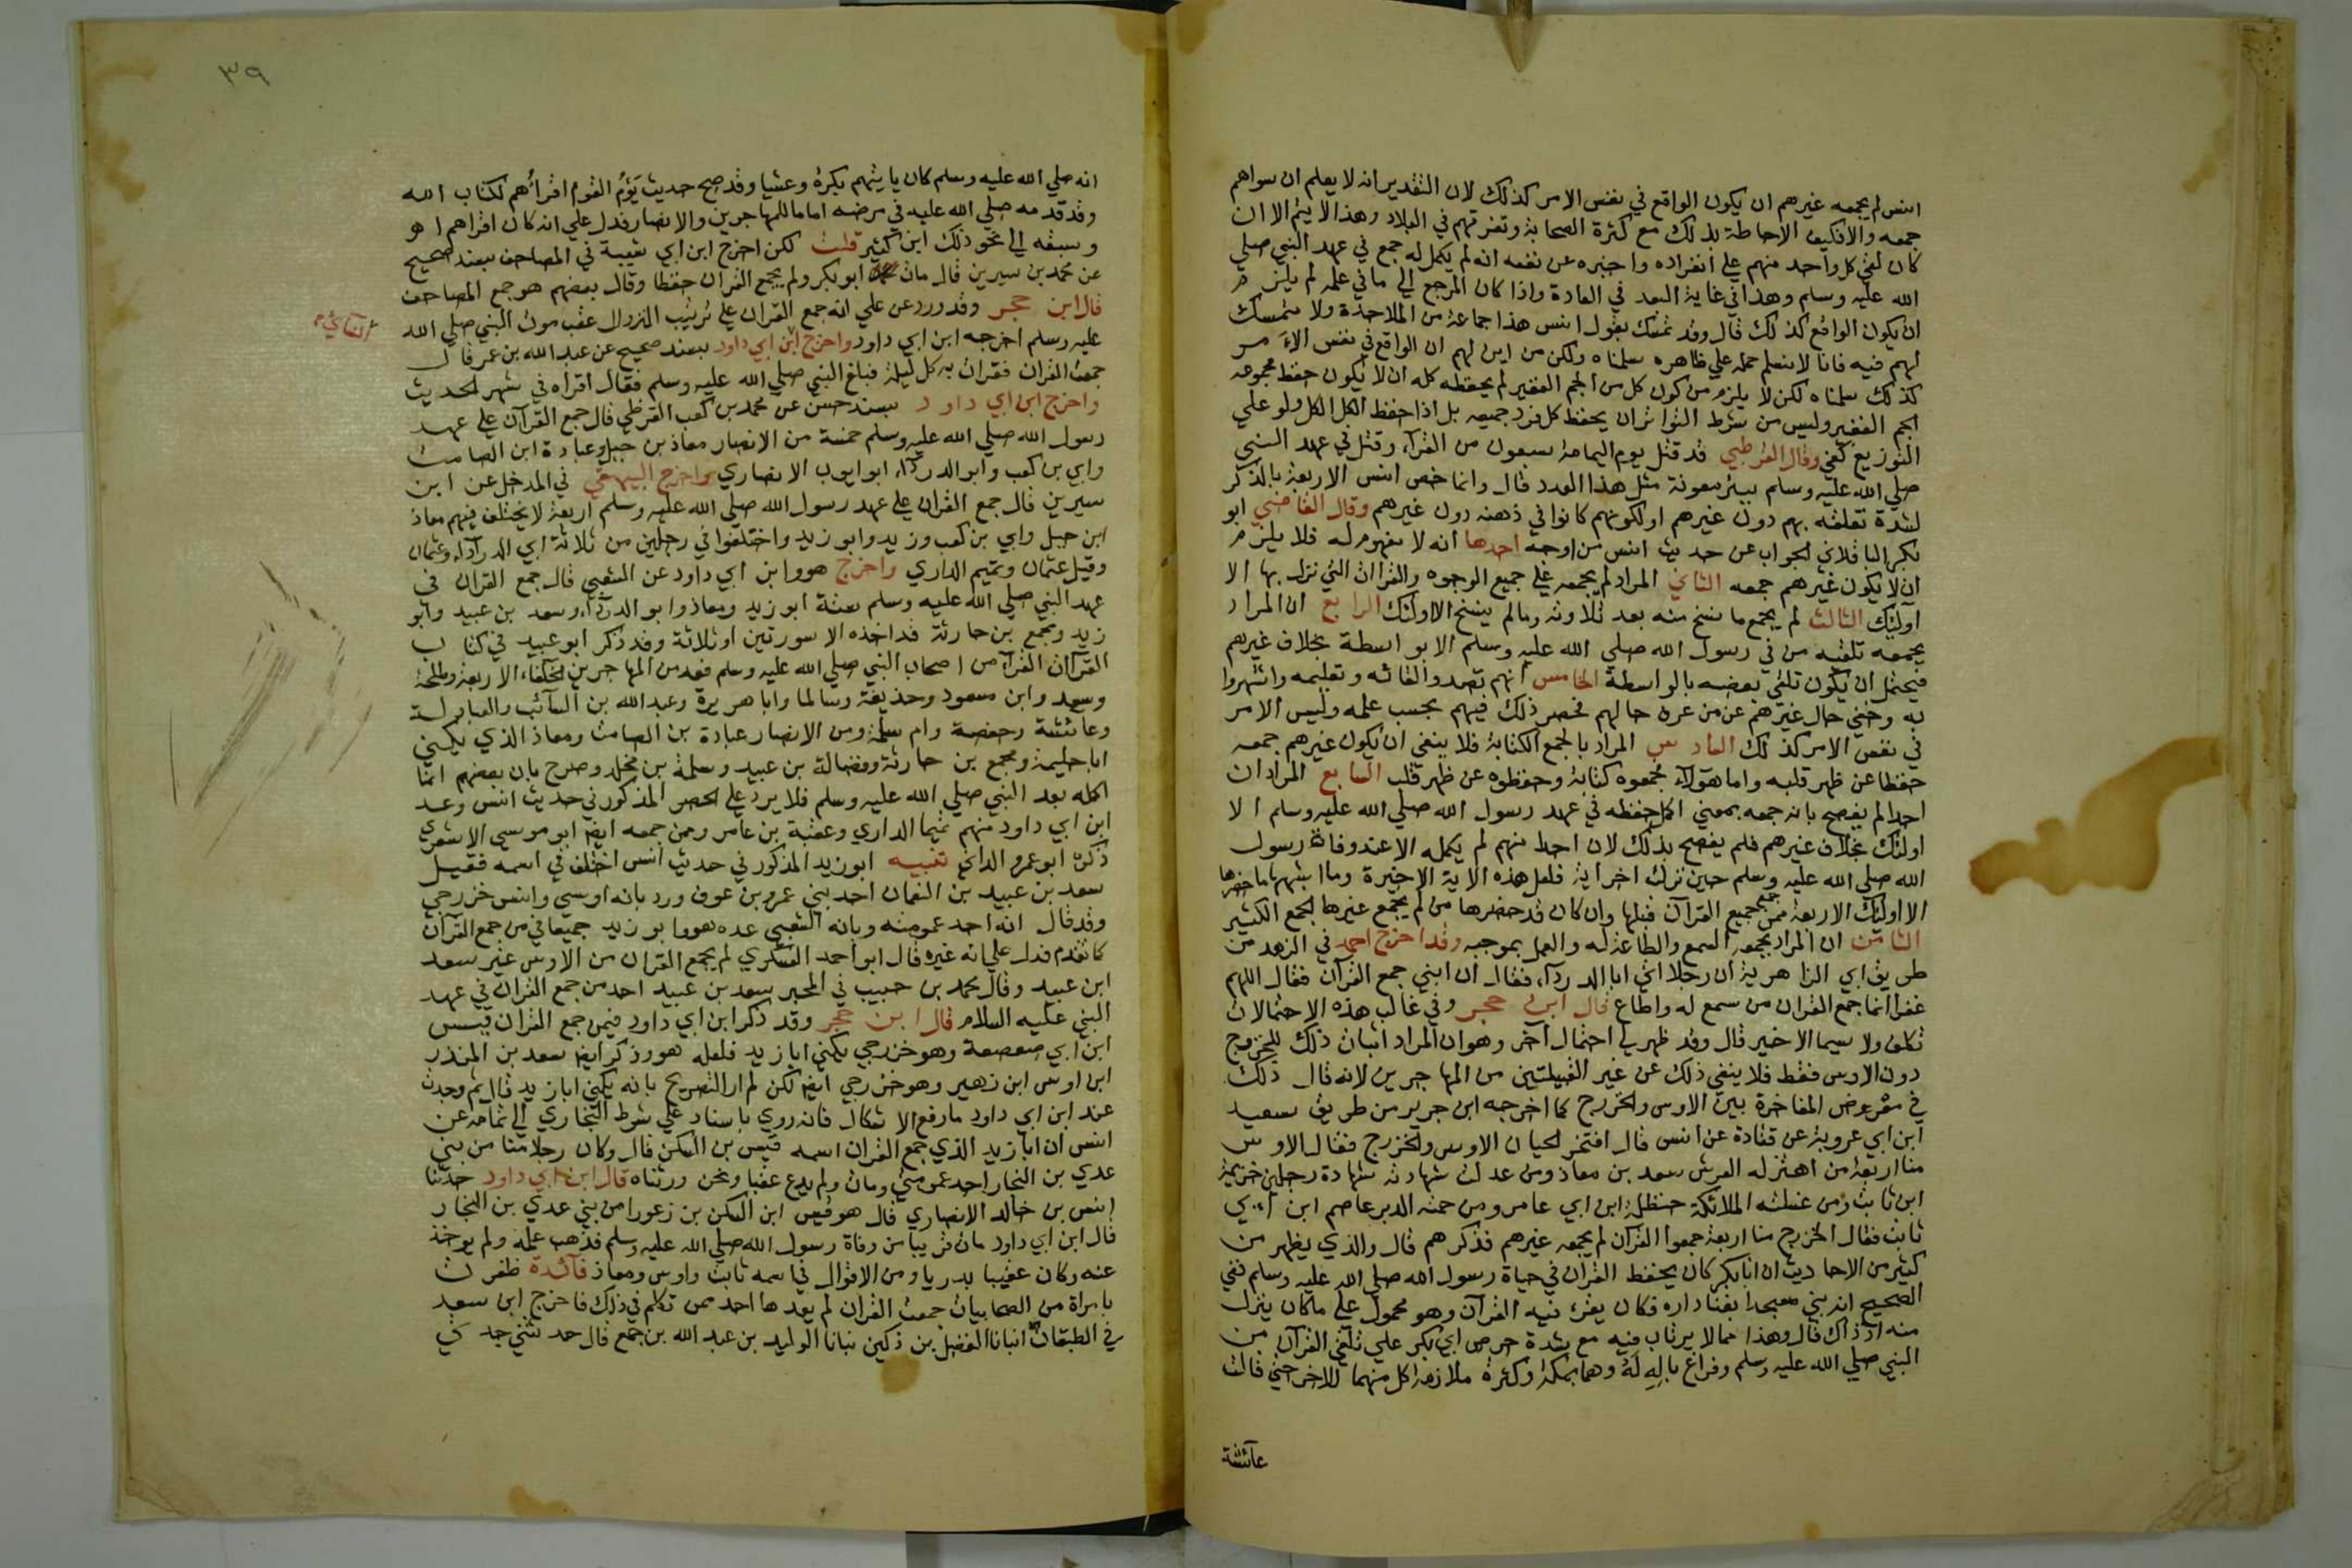 انس لم يجمعه غيرهم ان يكون الواقع في نفس الامر كذلك لان التقدير انه لا يعلم ان سواهم
جمعه والا فكيف الاحاطة بذلك مع كثرة الصحابة وتفرقهم في البلاد وهذا لا يتم الا ان
كان لقي كل واحد منهم على انفراده واخبره عن نفسه انه لم يكمل له جمع في عهد النبي صلي
الله عليه وسلم وهذا في غاية البعد في العادة واذا كان المرجع الي ما في علمه لم يلزم
ان يكون الواقع كذلك قال وقد تمسك بقول انس هذا جماعة من الملاحدة ولا متمسك
لهم فيه فانا لا نسلم حمله علي ظاهره سلمناه ولكن من اين لهم ان الواقع في نفس الامر
كذلك سلمناه لكن لا يلزم من كون كل من الجم الغفير لم يحفظه كله ان لا يكون حفظ مجموعه
الجم الغفير وليس من شرط التواتر ان يحفظ كل فرد جميعه بل اذا حفظ الكل الكل ولو علي
التوزيع كفي وقال القرطبي قد قتل يوم اليمامة سبعون من القراء وقتل في عهد النبي
صلي الله عليه وسلم ببئر معونة مثل هذا العدد قال وانما خص انس الاربعة بالذكر
لشدة تعلقه بهم دون غيرهم او لكونهم كانوا في ذهنه دون غيرهم وقال القاضي ابو
بكر الباقلاني الجواب عن حديث انس من اوجه احدها انه لا مفهوم له فلا يلزم
ان لا يكون غيرهم جمعه الثاني المراد لم يجمعه علي جميع الوجوه والقراات التي نزل بها الا
اولئك الثالث لم يجمع ما نسخ منه بعد تلاوته وما لم ينسخ الا اولئك الرابع ان المراد
بجمعه تلقيه من في رسول الله صلي الله عليه وسلم الا بواسطة بخلاف غيرهم
فيحتمل ان يكون تلقي بعضه بالواسطة الخامس انهم تصدوا لقائه وتعليمه واشتهروا
به وخفي حال غيرهم عن من عرف حالهم فحصر ذلك فيهم بحسب علمه وليس الامر
في نفس الامر كذلك السادس المراد بالجمع الكتابة فلا ينفي ان يكون غيرهم جمعه
حفظا عن ظهر قلبه واما هؤلاء فجمعوه كتابة وحفظوه عن ظهر قلب السابع المراد ان
احدا لم يفصح بانه جمعه بمعني اكمل حفظه في عهد رسول الله صلي الله عليه وسلم الا
اولئك بخلاف غيرهم فلم يفصح بذلك لان احدا منهم لم يكمله الا عند وفاة رسول
الله صلي الله عليه وسلم حين نزلت اخر اية فلعل هذه الاية الاخيرة وما اشبهها ما حضرها
الا اولئك الاربعة ممن جمع جميع القرآن قبلها وان كان قد حضرها من لم يجمع غيرها الجمع الكثير
الثامن ان المراد بجمعه السمع والطاعة له والعمل بموجبه وقد اخرج احمد في الزهد من
طريق ابي الزاهرية ان رجلا اتي ابا الدرداء فقال ان ابني جمع القرآن فقال اللهم
غفرا انما جمع القران من سمع له واطاع قال ابن حجر وفي غالب هذه الاحتمالات
تكلف ولا سيما الاخير قال وقد ظهر لي احتمال آخر وهو ان المراد اثبات ذلك للخزرج
دون الاوس فقط فلا ينفي ذلك عن غير القبيلتين من المهاجرين لانه قال ذلك
في معرض المفاخرة بين الاوس والخزرج كما اخرجه ابن جرير من طريق سعيد
ابن ابي عروبة عن قتادة عن انس قال افتخر الحيان الاوس والخزرج فقال الاوس
منا اربعة من اهتز له العرش سعد بن معاذ ومن عدلت شهادته شهادة رجلين خزيمة
ابن ثابت ومن غسلته الملائكة حنظلة ابن ابي عامر ومن حمته الدبر عاصم ابن ابي
ثابت فقال الخزرج منا اربعة جمعوا القرآن لم يجمعه غيرهم فذكرهم قال والذي يظهر من
كثير من الاحاديث ان ابا بكر كان يحفظ القران في حياة رسول الله صلي الله عليه وسلم ففي
الصحيح انه بني مسجدا بفنا داره فكان يقرئ فيه القرآن وهو محمول علي ما كان ينزل
منه اذ ذاك قال وهذا مما لا يرتاب فيه مع شدة حرص ابي بكر علي تلقي القرآن من
النبي صلي الله عليه وسلم وفراغ باله له وهما بمكة وكثرة ملازمة كل منهما للاخر حتي قالت
عائشة
٣٩
انه صلي الله عليه وسلم كان ياتيهم بكرة وعشيا وقد صح حديث يؤم القوم اقراهم لكتاب الله
وقد قدمه صلي الله عليه في مرضه اماما للمهاجرين والانصار فدل علي انه كان اقراهم ا هو
وسبقه الي نحو ذلك ابن كثير قلت لكن اخرج ابن ابي شيبة في المصاحف بسند صحيح
عن محمد بن سيرين قال مات ابو بكر ولم يجمع القران حفظا وقال بعضهم هو جمع المصاحف
قال ابن حجر وقد ورد عن علي انه جمع القران علي ترتيب النزول عقب موت النبي صلي الله
عليه وسلم اخرجه ابن ابي داود واخرج ابن ابي داود بسند صحيح عن عبد الله بن عمر قال
جمعت القران فقرات به كل ليلة فبلغ النبي صلي الله عليه وسلم فقال اقراه في شهر الحديث
واخرج ابن ابي داود بسند حسن عن محمد بن كعب القرظي قال جمع القرآن علي عهد
رسول الله صلي الله عليه وسلم خمسة من الانصار معاذ بن جبل وعبادة ابن الصامت
وابي بن كعب وابو الدرداء ابو ايوب الانصاري واخرج البيهقي في المدخل عن ابن
سيرين قال جمع القران علي عهد رسول الله صلي الله عليه وسلم اربعة لا يختلف فيهم معاذ
ابن جبل وابي بن كعب وزيد وابو زيد واختلفوا في رجلين من ثلاثة ابي الدرداء وعثمان
وقيل عثمان وتميم الداري واخرج هو وابن ابي داود عن الشعبي قال جمع القران في
عهد النبي صلي الله عليه وسلم ستة ابو زيد ومعاذ وابو الدرداء وسعد بن عبيد وابو
زيد ومجمع بن حارثة قد اخذه الا سورتين او ثلاثة وقد ذكر ابو عبيد في كتاب
القرآآت القرآء من اصحاب النبي صلي الله عليه وسلم فعد من المهاجرين الخلفاء الاربعة وطلحة
وسعد وابن مسعود وحذيفة وسالما وابا هريرة وعبد الله بن السائب والعبادلة
وعائشة وحفصة وام سلمة ومن الانصار عبادة بن الصامت ومعاذ الذي يكني
ابا حليمة ومجمع بن حارثة وفضالة بن عبيد وسلمة بن مخلد وصرح بان بعضهم انما
اكمله بعد النبي صلي الله عليه وسلم فلا يرد علي الحصر المذكور في حديث انس وعد
ابن ابي داود منهم تميما الداري وعقبة بن عامر وممن جمعه ايضا ابو موسي الاشعري
ذكره ابو عمرو الداني تنبيه ابو زيد المذكور في حديث انس اختلف في اسمه فقيل
سعد بن عبيد بن النعمان احد بني عمرو بن عوف ورد بانه اوسي وانس خزرجي
وقد قال انه احد عمومته وبانه الشعبي عده هو وابو زيد جميعا في من جمع القرآن
كما تقدم فدل علي انه غيره قال ابو احمد العسكري لم يجمع القران من الاوس غير سعد
ابن عبيد وقال محمد بن حبيب في المحبر سعد بن عبيد احد من جمع القران في عهد
النبي عليه السلام قال ابن حجر وقد ذكر ابن ابي داود فيمن جمع القران قيس
ابن ابي صعصعة وهو خزرجي يكني ابا زيد فلعله هو وذكر ايضا سعد بن المنذر
ابن اوس ابن زهير وهو خزرجي ايضا لكن لم ار التصريح بانه يكني ابا زيد قال ثم وجدت
عند ابن ابي داود ما رفع الاشكال فانه روي باسناد علي شرط البخاري الي ثمامة عن
انس ان ابا زيد الذي جمع القران اسمه قيس بن السكن قال وكان رجلا منا من بني
عدي بن النجار احد عمومتي ومات ولم يدع عقبا ونحن ورثناه قال ابن ابي داود حدثنا
انس بن خالد الانصاري قال هو قيس ابن السكن بن زعورا من بني عدي بن النجار
قال ابن ابي داود مات قريبا من وفاة رسول الله صلي الله عليه وسلم فذهب علمه ولم يوخذ
عنه وكان عقبيا بدريا ومن الاقوال في اسمه ثابت واوس ومعاذ فآئدة ظفرت
بامراة من الصحابيات جمعت القران لم يعدها احد ممن تكلم في ذلك فاخرج ابن سعد
في الطبقات انبانا الفضل بن دكين نبانا الوليد بن عبد الله بن جمع قال حدثتني جدتي